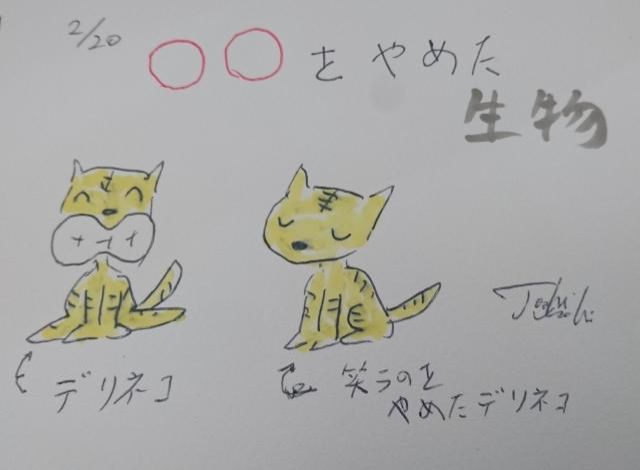 2/20
○○をやめた
生物
デリネコ
笑うのを
やめたデリネコ